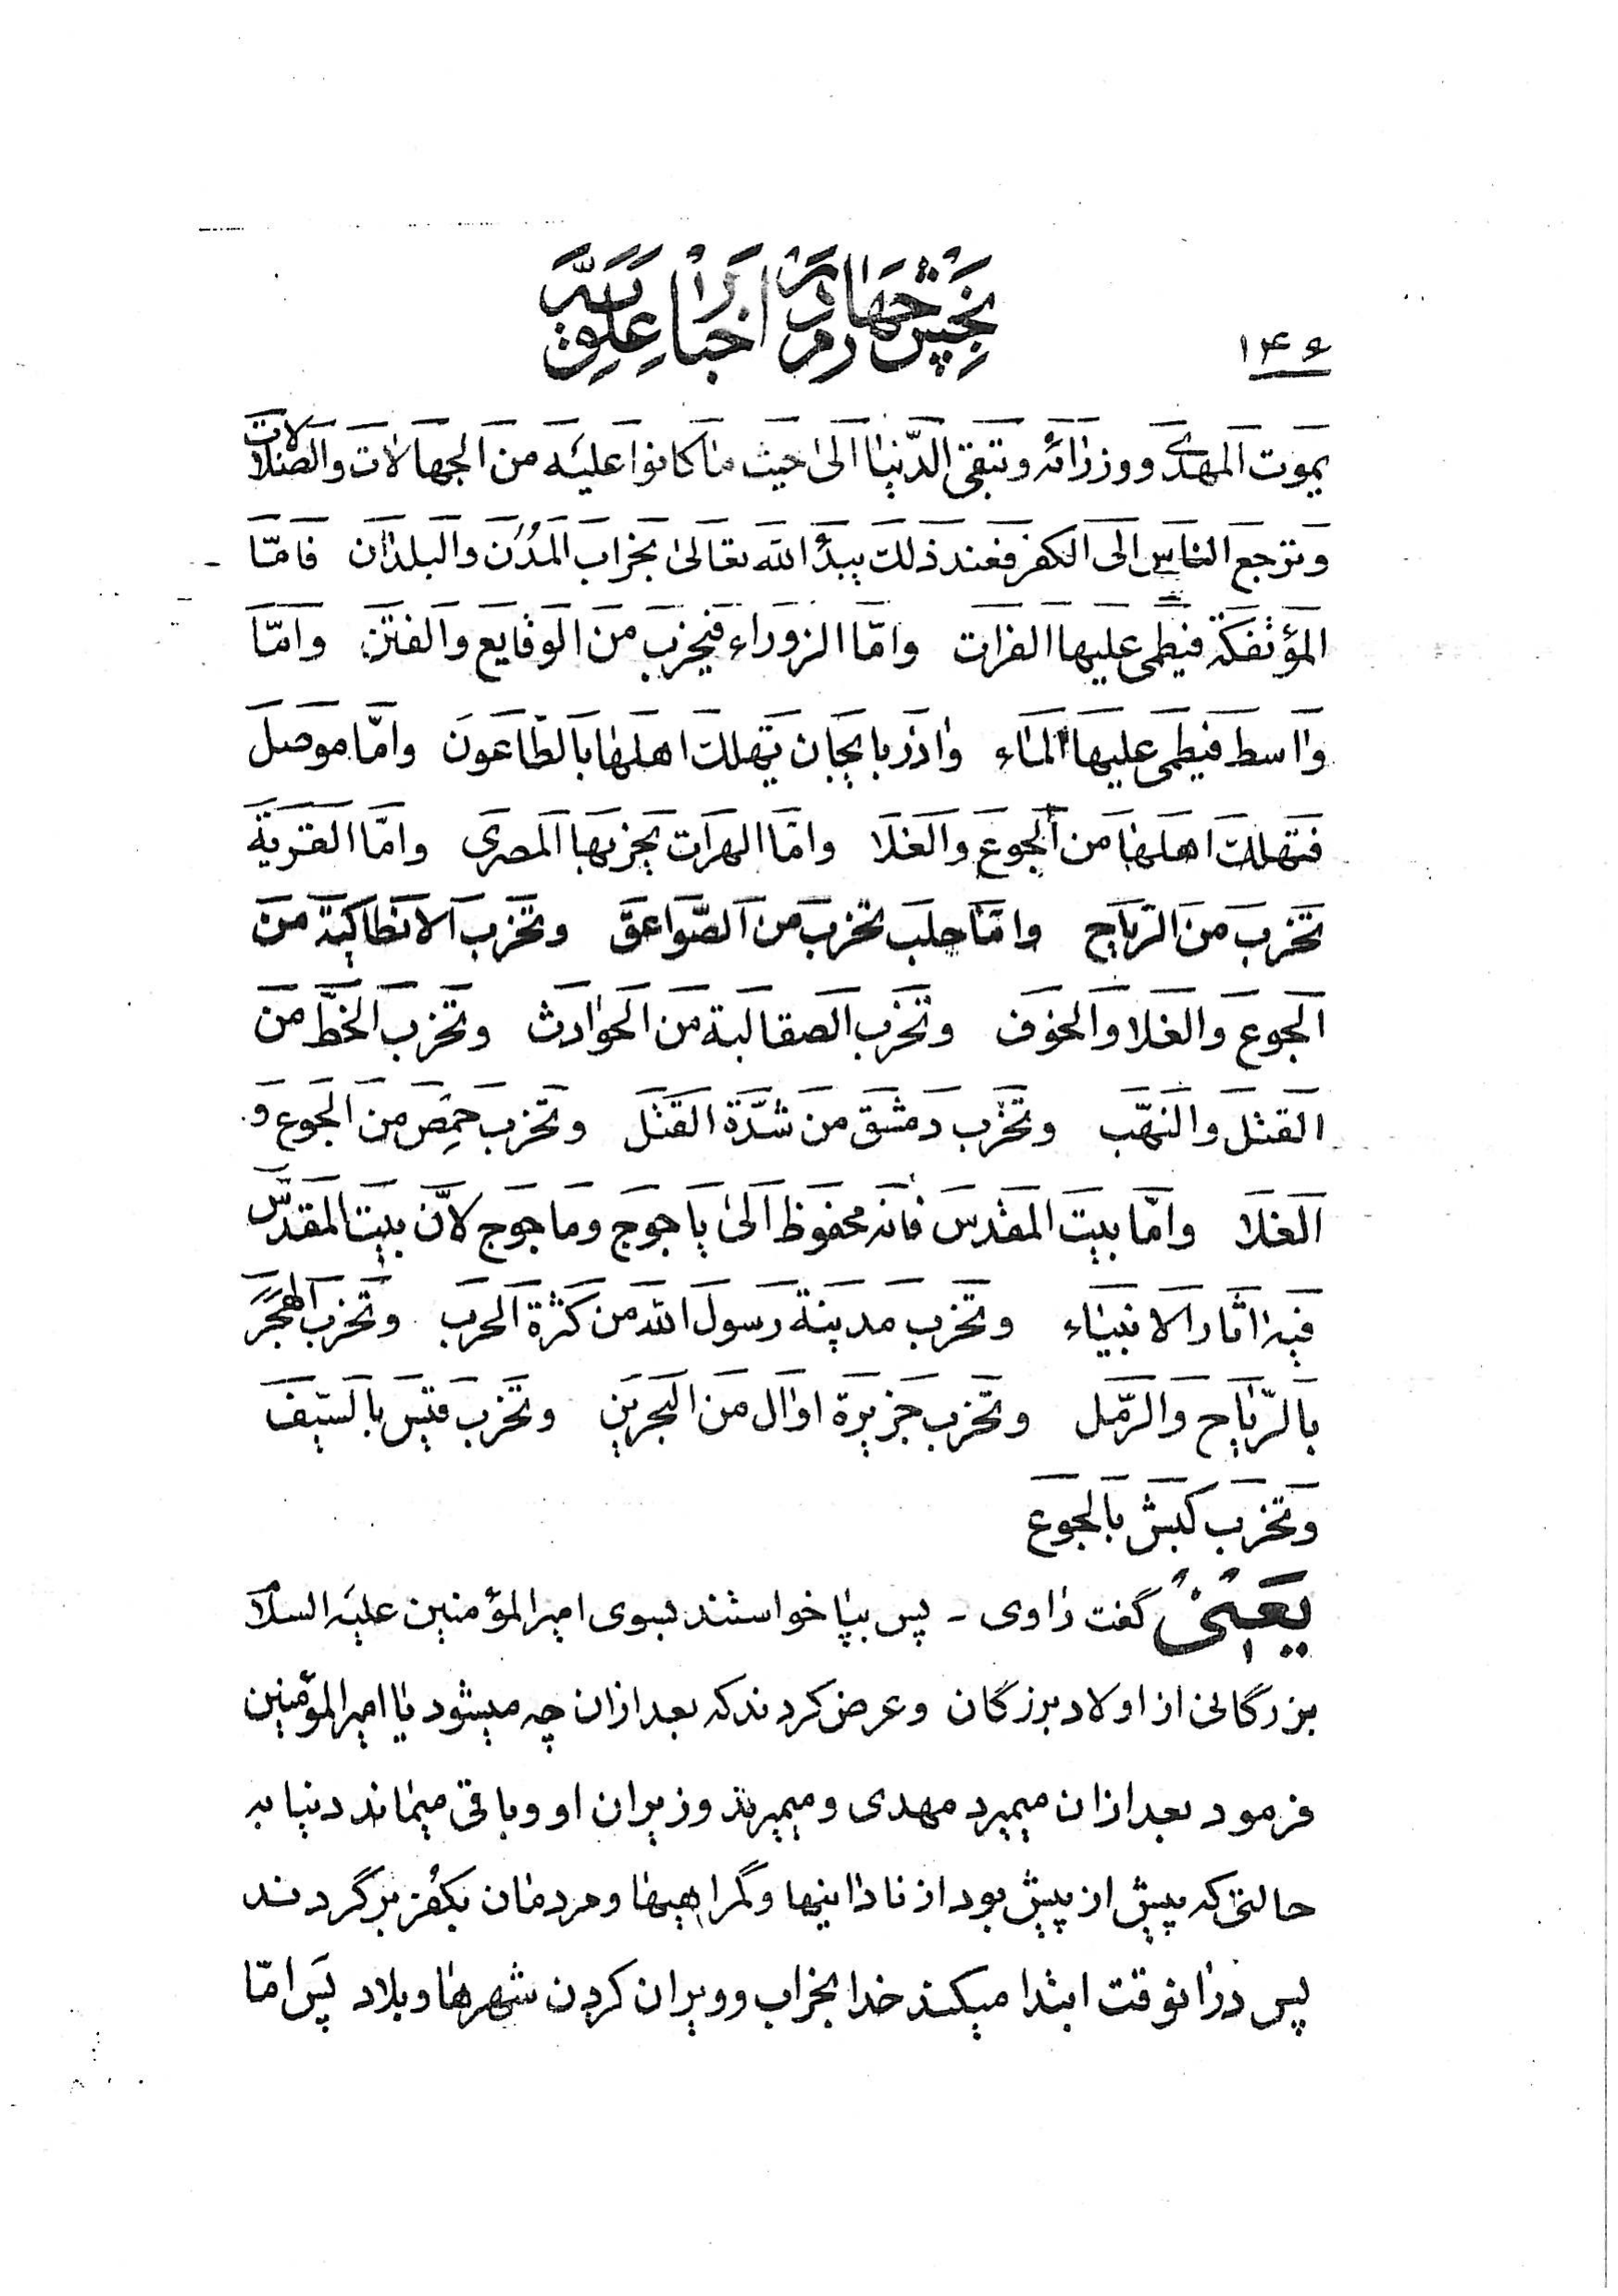 بخش چهارم در اخبار علویّه
۱۴۶
یموت المهدی ووزرائه وتبقی الدّنیا الی حیث ما کانوا علیه من الجهالات والضلالات
وترجع الناس الی الکفر فعند ذلک یبدأ الله تعالی بخراب المدن والبلدان فامّا
المؤتفکة فیطمی علیها الفرات وامّا الزوراء فیخرب من الوقایع والفتن وامّا
واسط فیطمی علیها الماء واذربایجان یهلک اهلها بالطّاعون وامّا موصل
فتهلک اهلها من الجوع والغلا وامّا الهرات یخربها المصری وامّا القریة
تخرب من الرّیاح وامّا حلب تخرب من الصّواعق وتخرب الانطاکیة من
الجوع والغلا والخوف وتخرب الصقالبة من الحوادث وتخرب الخطّ من
القتل والنهّب وتخرب دمشق من شدّة القتل وتخرب حمص من الجوع و
الغلا وامّا بیت المقدس فانه محفوظ الی یاجوج وماجوج لانّ بیت المقدّس
فیه اثار الانبیاء وتخرب مدینة رسول الله من کثرة الحرب وتخرب الهجر
بالرّیاح والرّمل وتخرب جزیرة اوال من البحرین وتخرب قیس بالسّیف
وتخرب کبش بالجوع
یعنی گفت راوی - پس بپا خواستند بسوی امیرالمؤمنین علیه السلام
بزرگانی از اولاد بزرگان وعرض کردند که بعد ازان چه میشود یا امیرالمؤمنین
فرمود بعد ازان میمیرد مهدی ومیمیرند وزیران او وباقی میماند دنیا به
حالتی که پیش از پیش بود از نادانیها وگمراهیها ومردمان بکفر برگردند
پس درانوقت ابتدا میکند خدا بخراب وویران کردن شهرها وبلاد پس امّا